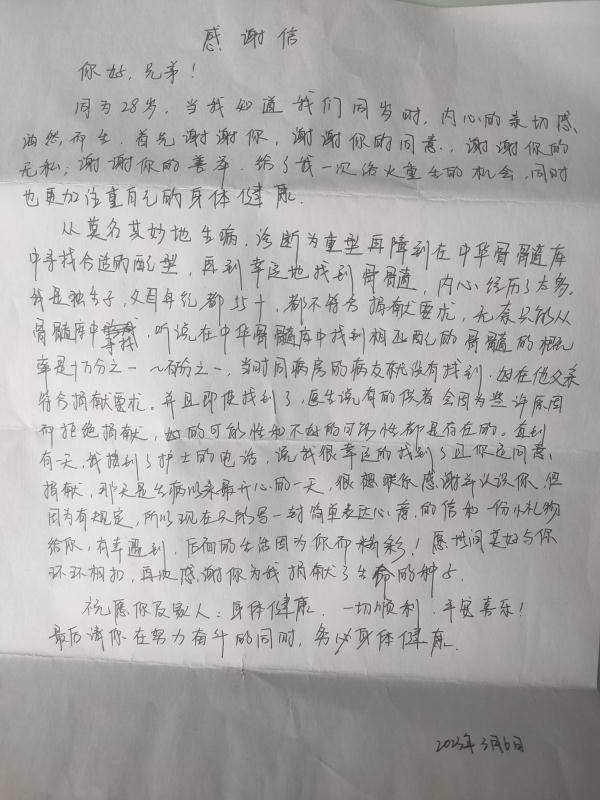 感谢信
你好,兄弟!
同为28岁,当我知道我们同岁时,内心的亲切感
油然而生。首先谢谢你,谢谢你的同意,谢谢你的
无私,谢谢你的善举。给了我一次浴火重生的机会,同时
也更加注重自己的身体健康。
从莫名其妙地生病,诊断为重型再障到在中华骨髓库
中寻找合适的配型,再到幸运地找到骨髓,内心经历了太多。
我是独生子,父母年纪都55+,都不符合捐献要求,无奈只能从
骨髓库中寻找,听说在中华骨髓库中找到相匹配的骨髓的概
率是十万分之一~百分之一,当时同病房的病友就没有找到,好在他父亲
符合捐献要求。并且即使找到了,医生说有的供者会因为些许原因
而拒绝捐献,好的可能性和不好的可能性都是存在的。直到
有一天,我接到了护士的电话,说我很幸运的找到了且你还同意
捐献,那天是生病以来最开心的一天,很想联系感谢并认识你,但
因为有规定,所以现在只能写一封简单表达心意的信和一份小礼物
给你,有幸遇到,后面的生活因为你而精彩!愿世间美好与你
环环相扣,再次感谢你为我捐献了生命的种子。
祝愿你及家人:身体健康,一切顺利,平安喜乐!
最后请你在努力奋斗的同时,务必身体健康。
2023年3月6日